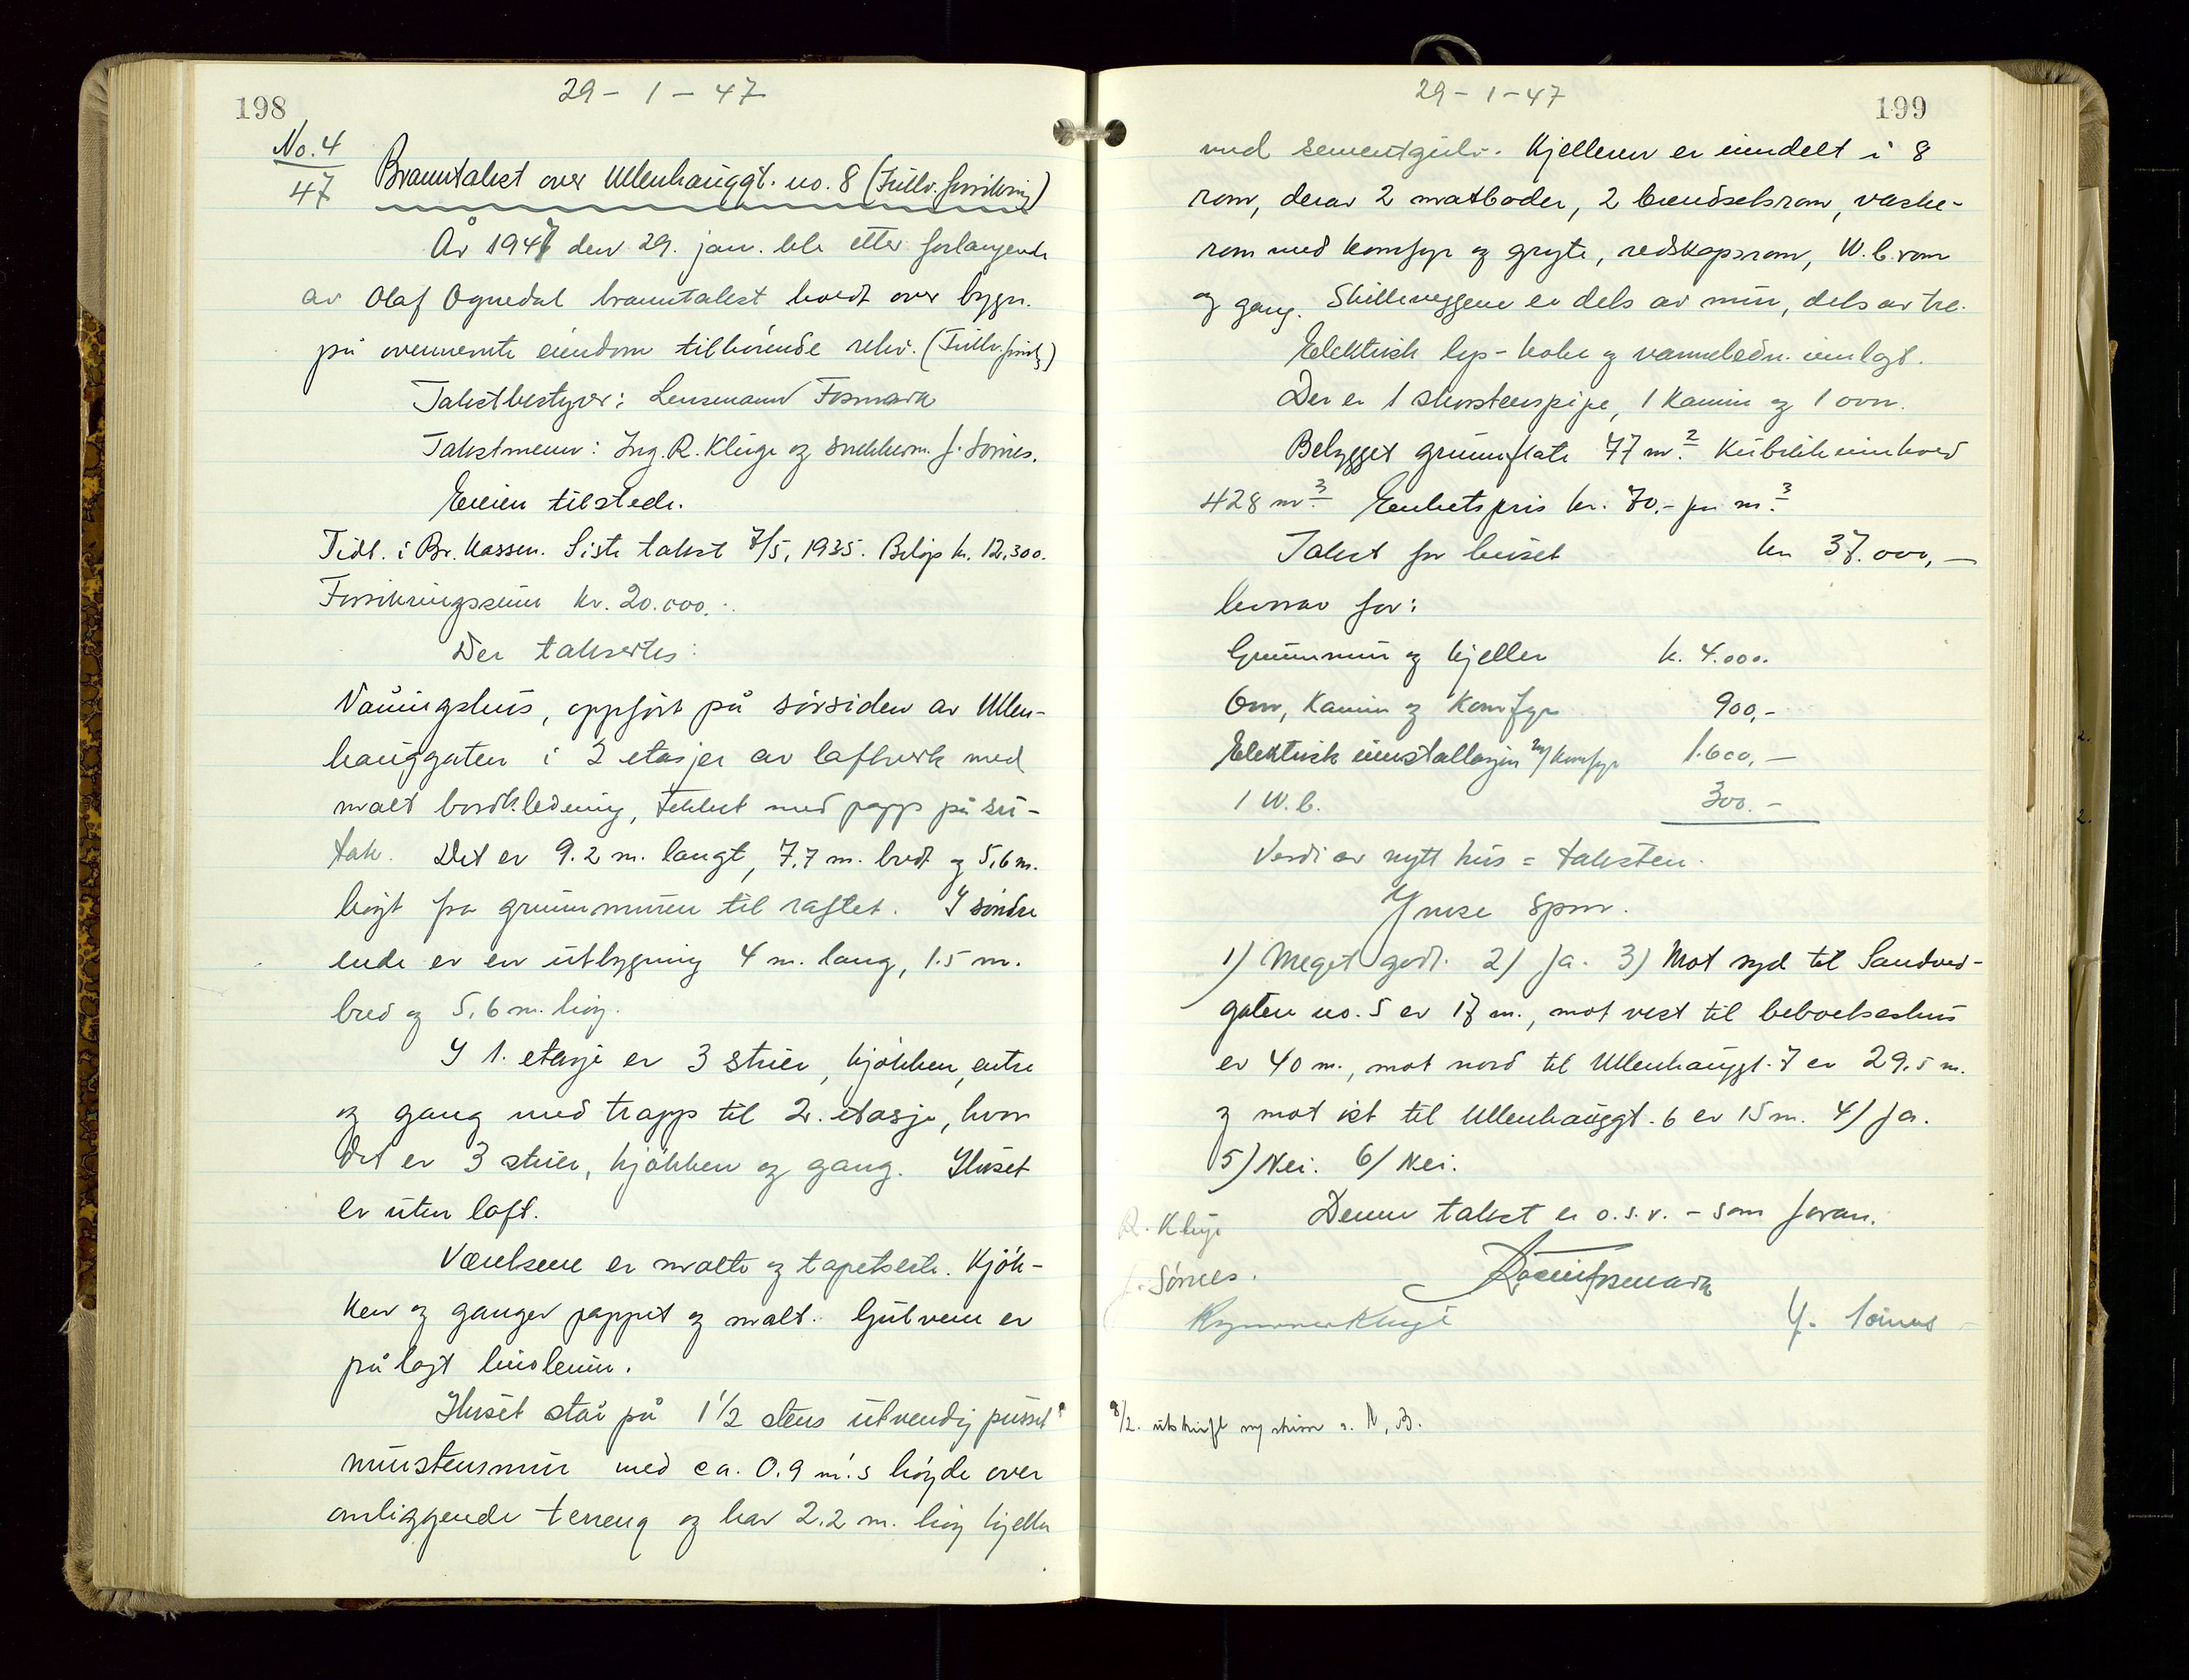 198
29 - 1 - 47
No. 4
47
Branntakst over Ullenhauggt. no. 8 (Fullv. forsikring)
År 1947 den 29. jan. ble etter forlangende
av Olaf Ognedal branntakst holdt over bygn.
på ovennemte eiendom tilhörende rekv. (Fullv. forsikr.)
Takstbestyrer: Lensmann Fosmark
Takstmenn: Ing. R. Kluge og snekkerm. J. Sörnes.
Eieren tilstede.
Tidl. i Br. kassen. Siste takst 7/5, 1935. Belöp kr. 12.300.
Forsikringssum kr. 20.000.-
Der taksertes:
Våningshus, oppfört på sörsiden av Ullen-
hauggaten i 2 etasjer av laftverk med
malt bordkledning, tekket med papp på su-
tak. Det er 9.2 m. langt, 7,7 m. bredt og 5,6 m.
höyt fra grunnmuren til raftet. I söndre
ende er en utbygning 4 m. lang, 1.5 m.
bred og 5,6 m. höy.
I 1. etasje er 3 stuer, kjökken, entre
og gang med trapp til 2. etasje, hvor
det er 3 stuer, kjökken og gang. Huset
er uten loft.
Værelsene er malte og tapetserte. Kjök-
ken og ganger pappet og malt. Gulvene er
pålagt linoleum.
Huset står på 1 1/2 stens utvendig pusset
murstensmur med ca. 0.9 m's höyde over
omliggende terreng og har 2.2 m. höy kjeller
29 - 1 - 47
199
med sementgulv. Kjelleren er inndelt i 8
rom, derav 2 matboder, 2 brendselsrom, vaske-
rom med komfyr og gryte, redskapsrom, W.C. rom
og gang. Skilleveggene er dels av mur, dels av tre.
Elektrisk lys- koke og vannledn. innlagt.
Der er 1 skorstenspipe, 1 kamin og 1 ovn.
Bebygget grunnflate 77 m.2 Kubikkinnhold
428 m3. Enhetspris kr. 70.- pr. m.3
Takst for huset kr 37.000,-
hvorav for:
Grunnmur og kjeller k. 4.000.
Ovn, kamin og komfyr 900,-
Elektrisk innstallasjon m/komfyr 1.600,-
1 W.C. 300.-
Verdi av nytt hus = taksten.
Ymse spm.
1) Meget godt. 2) Ja. 3) Mot syd til Sandved-
gaten no. 5 er 17 m., mot vest til beboelseshus
er 40 m., mot nord til Ullenhauggt. 7 er 29.5 m.
og mot öst til Ullenhauggt. 6 er 15 m. 4) Ja.
5) Nei. 6) Nei.
Denne takst er o.s.v. - som foran.
R. Kluge
J. Sörnes.
Fosmark
Kluge
J. Sörnes
8/2. utskrift